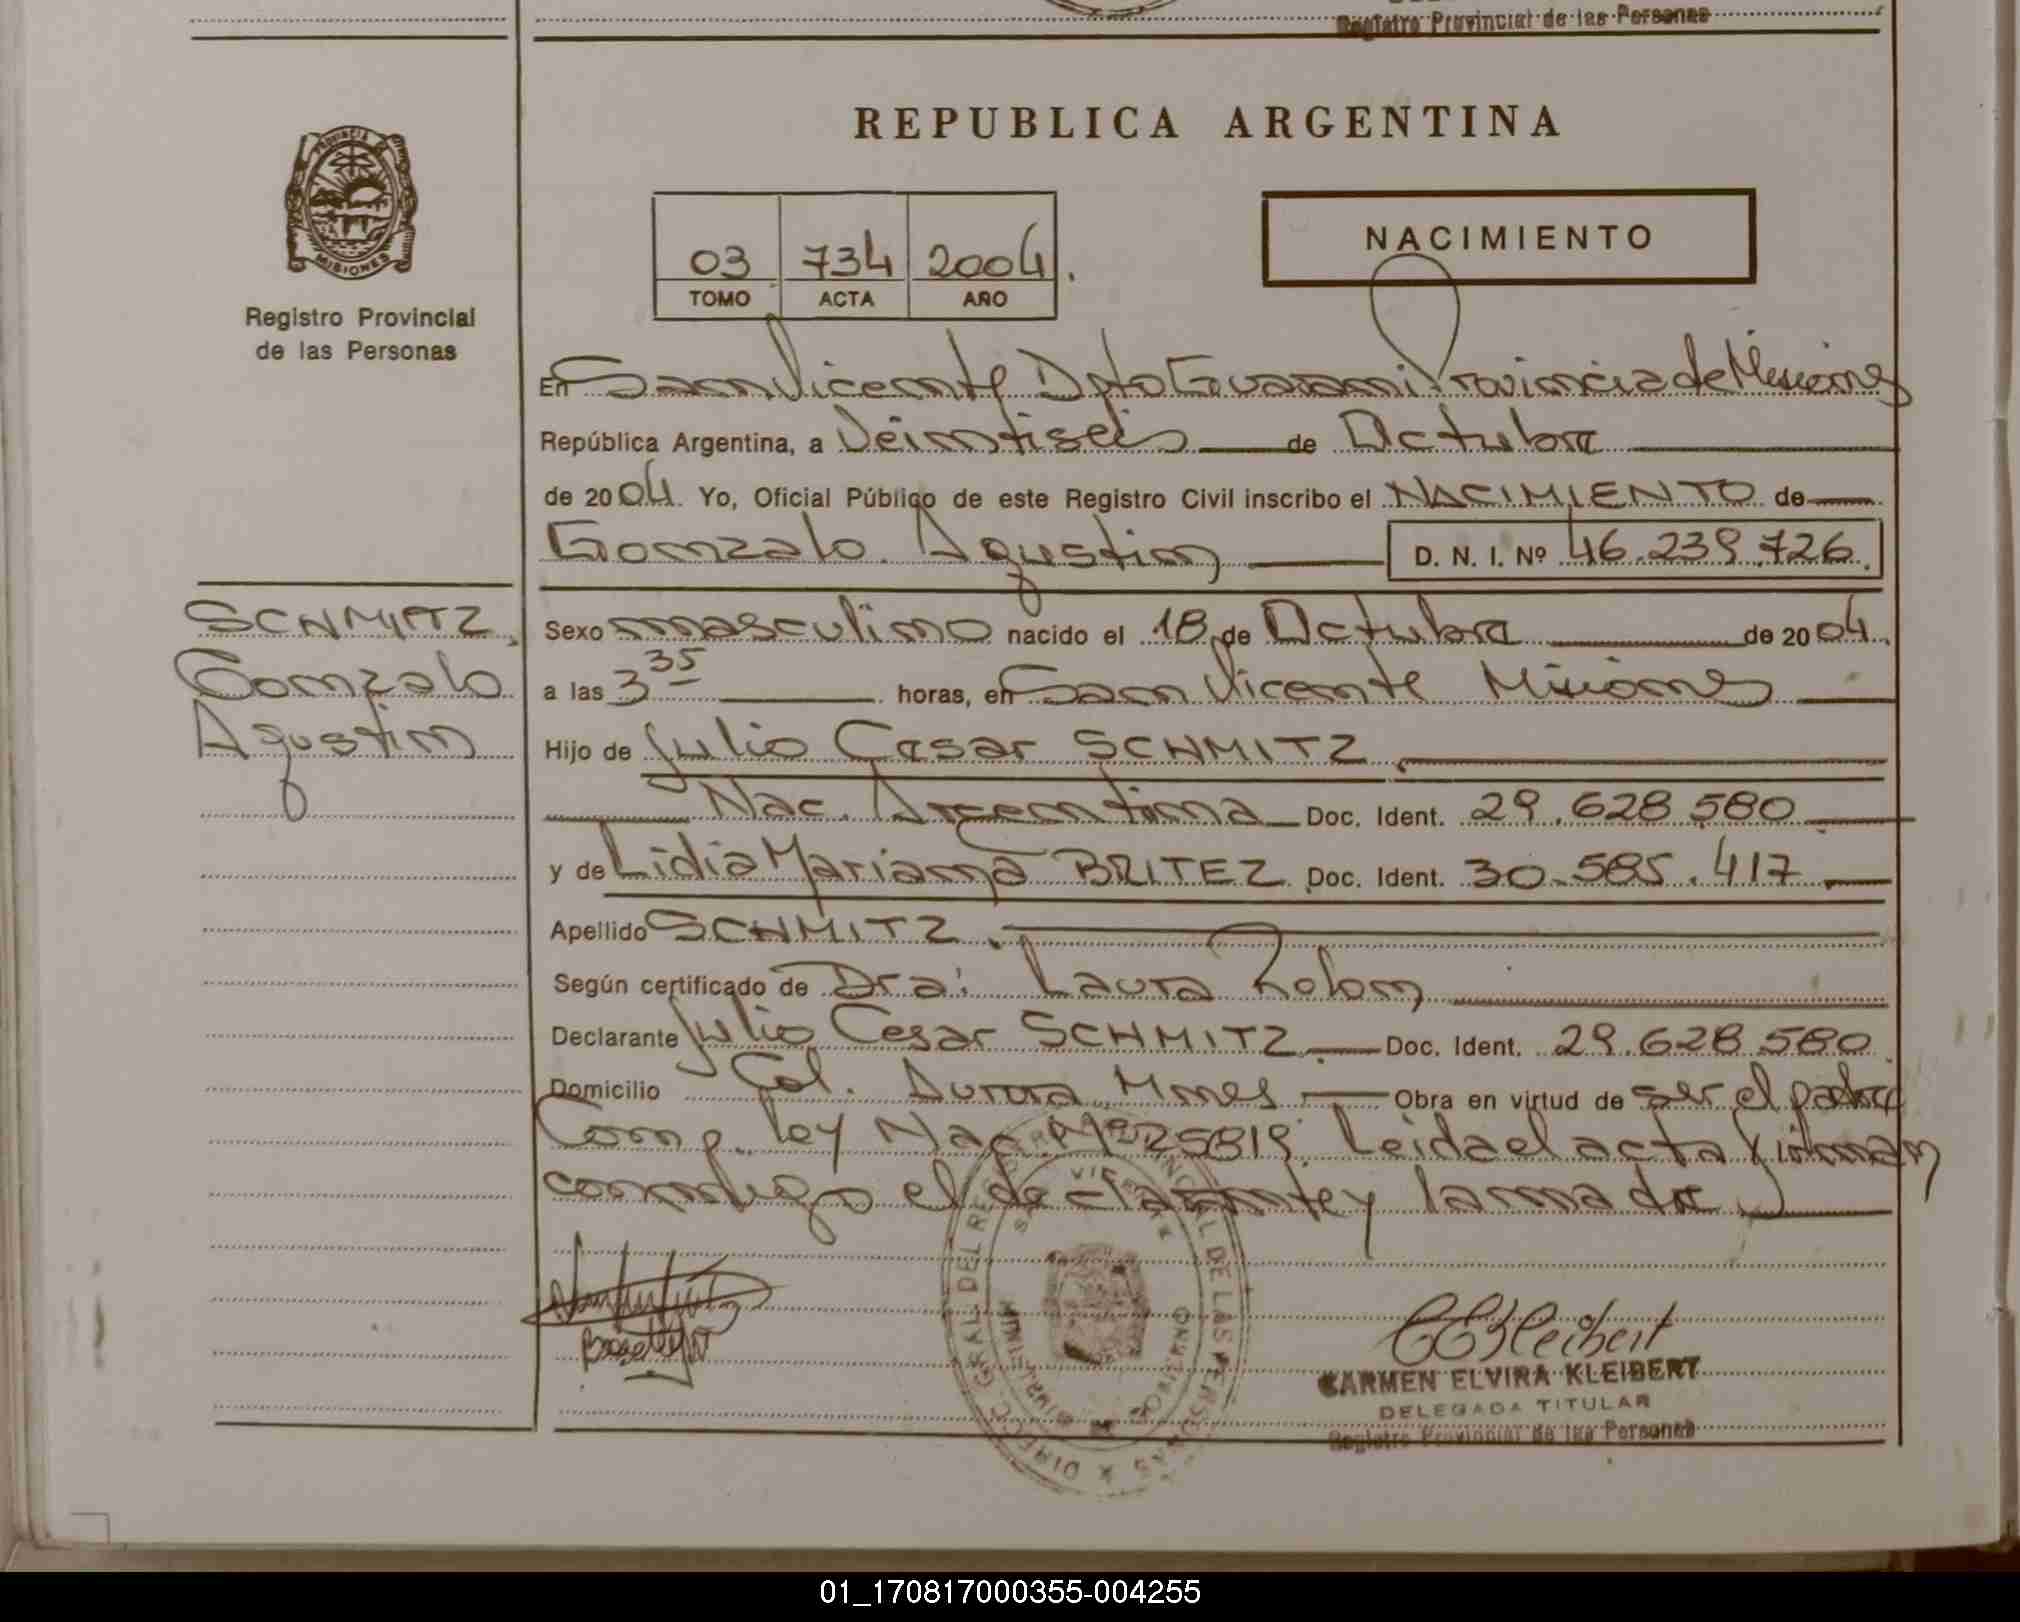 Registro Provincial de las Personas
PROVINCIA DE
MISIONES
Registro Provincial
de las Personas
REPUBLICA ARGENTINA
03 734 2004.
TOMO ACTA AÑO
NACIMIENTO
En San Vicente Dpto Guarani Provincia de Misiones
República Argentina, a Veintiseis de Octubre
de 2004. Yo, Oficial Público de este Registro Civil inscribo el NACIMIENTO de
Gonzalo Agustin D. N. I. Nº 46.239.726.
SCHMITZ,
Gonzalo
Agustin
Sexo masculino nacido el 18 de Octubre de 2004.
a las 3 35 horas, en San Vicente Misiones
Hijo de Julio Cesar SCHMITZ
Nac. Argentina Doc. Ident. 29.628.580
y de Lidia Mariana BRITEZ Doc. Ident. 30.585.417
Apellido SCHMITZ.
Según certificado de Dra: Laura Rolon
Declarante Julio Cesar SCHMITZ Doc. Ident. 29.628.580
Domicilio Col. Aurora Mnes Obra en virtud de ser el padre
Comp. Ley Nac. Nº 25819. Leida el acta firman
conmigo el declarante y la madre
CEKleibert
CARMEN ELVIRA KLEIBERT
DELEGADA TITULAR
Registro Provincial de las Personas
01_170817000355-004255